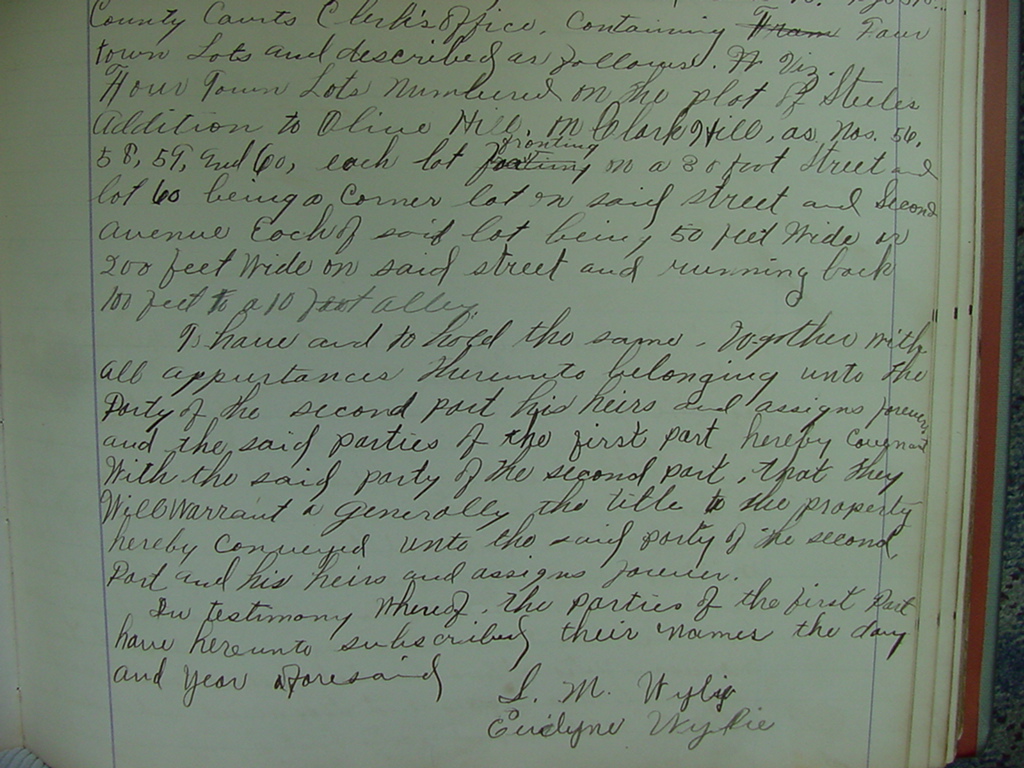 County Courts Clerk's office. Containing Four
town Lots and described as follows. To Viz.
Four Town Lots Numbered on the plot of Steeles
Addition to Olive Hill, on Clark Hill, as Nos. 56,
58, 59, and 60, each lot fronting on a 30 foot Street and
lot 60 being a Corner lot on said street and Second
Avenue Each of said lot being 50 feet Wide or
200 feet Wide on said street and running back
100 feet to a 10 foot alley.
To have and to hold the same. Together with
all appurtances thereunto belonging unto the
Party of the second part his heirs and assigns forever
and the said parties of the first part hereby Covenant
With the said party of the second part, that they
Will Warrant a generally the title to the property
hereby Conveyed unto the said party of the second
Part and his heirs and assigns forever.
In testimony Whereof, the parties of the first Part
have hereunto subscribed their names the day
and year aforesaid
L. M. Wylie
Wylie